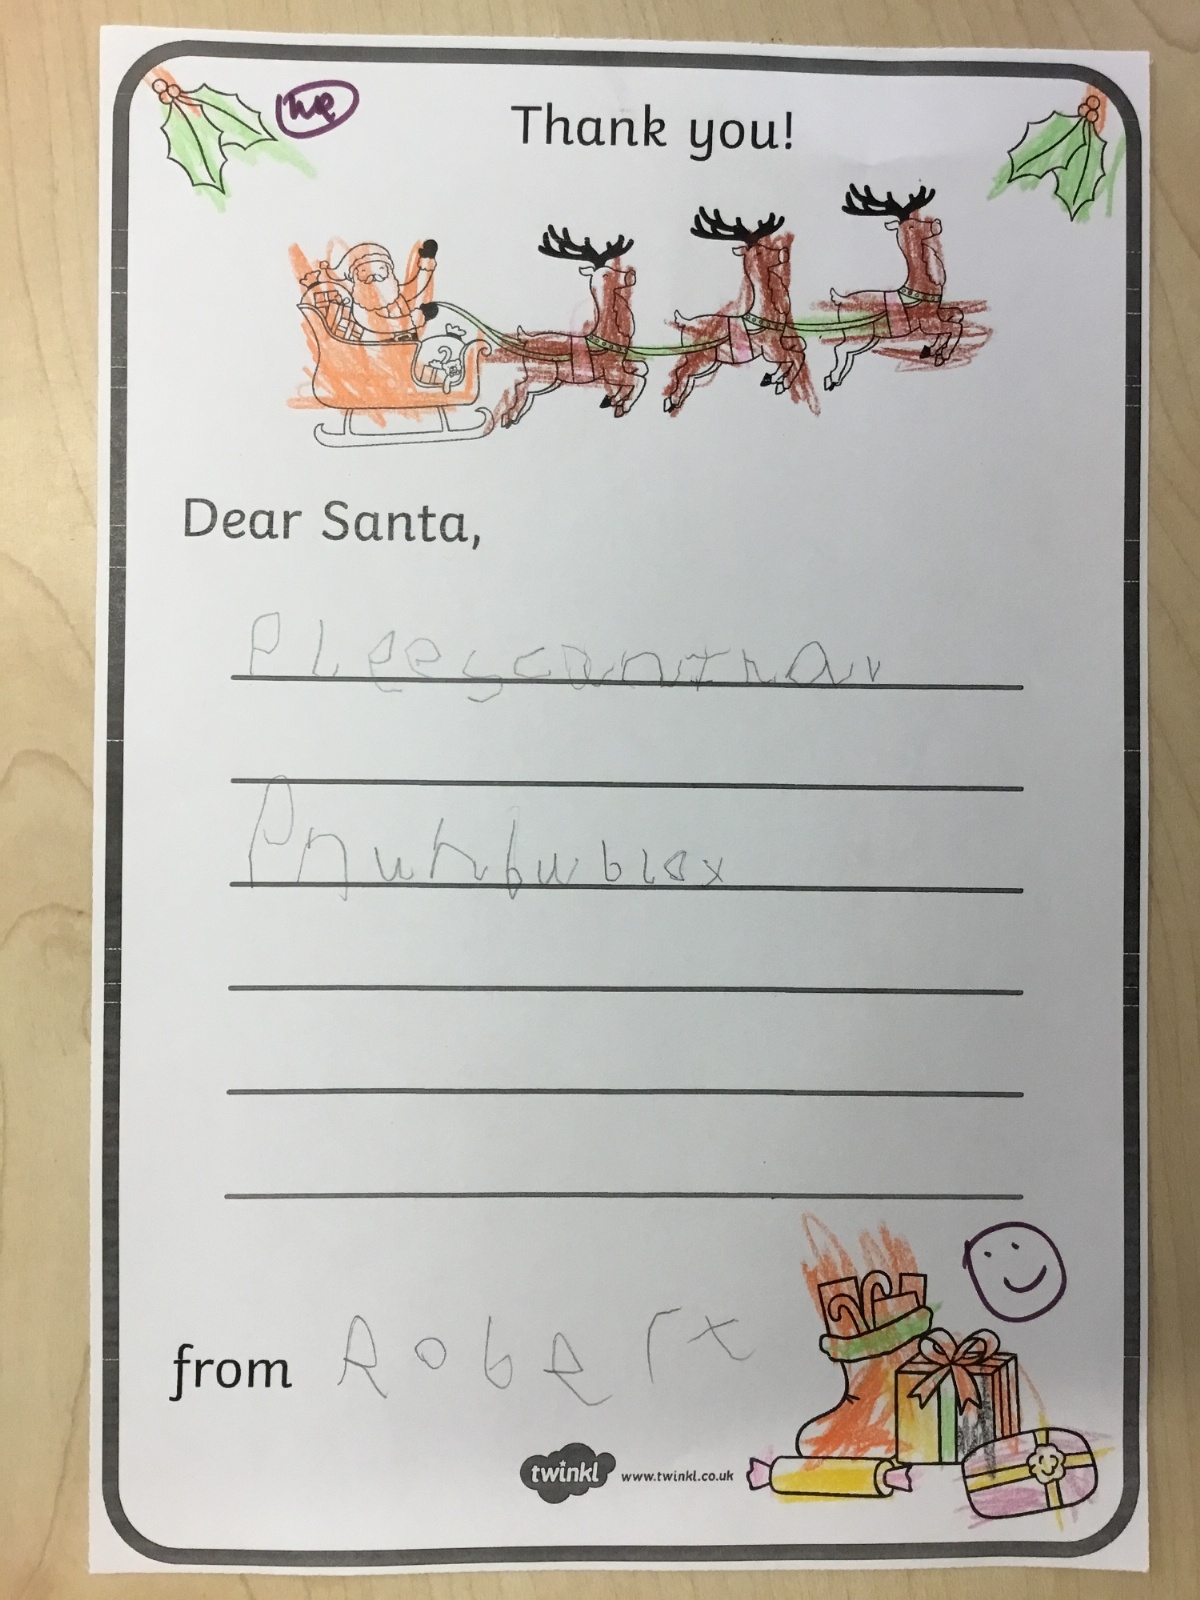 we
Thank you!
Dear Santa,
PLeescanIhav
from Robert
twinkl www.twinkl.co.uk